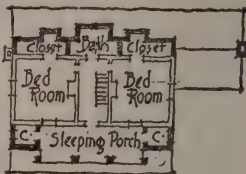 Closet Bath Closet
Bed Room
Bed Room
C. Sleeping Porch C.